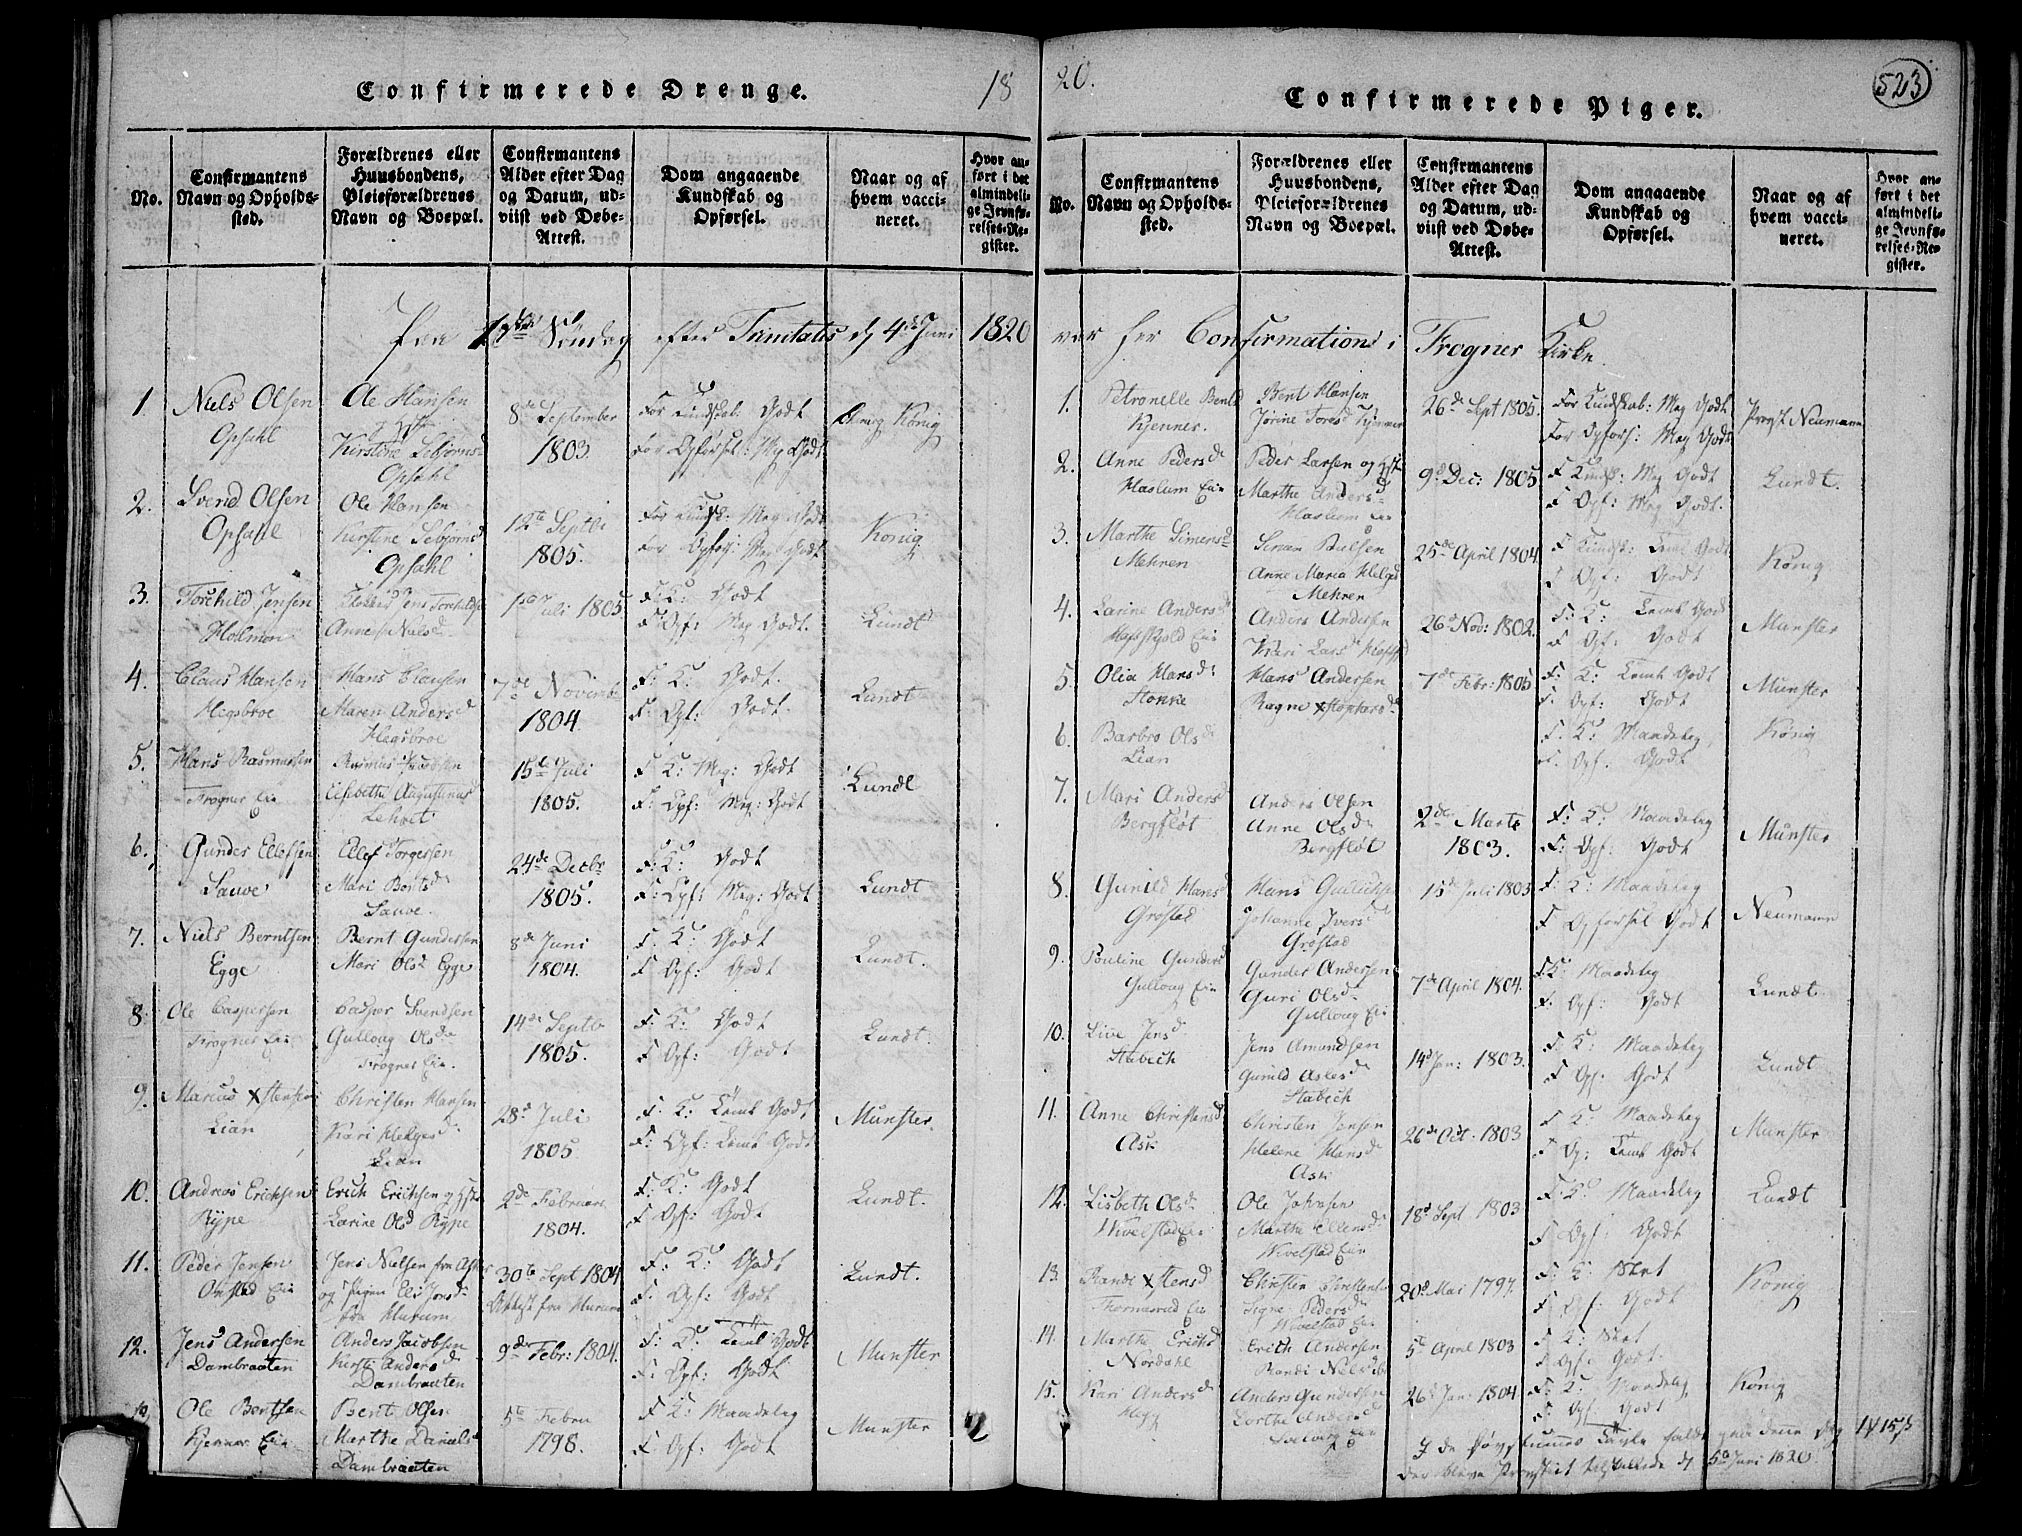 Confirmerede Drenge.
18
No.
Confirmantens Navn og Opholdssted.
Forældrenes eller Huusbondens, Pleieforældrenes Navn og Boepæl.
Confirmantens Alder efter Dag og Datum, udviist ved Døbe-Attest.
Dom angaaende Kundskab og Opførsel.
Naar og af hvem vaccineret.
Hvor anført i det almindelige Jevnførelses-Register.
Paa 1ste Søndag efter Trinitatis d 4de Juni 1820
1
Niels Olsen
Opsahl
Ole Hansen
Kirstine Sebjørnsd
Opsahl
8de September
1803.
For Kundskab: Godt
For Opførsel: Mg Godt
König
2.
Svend Olsen
Opsahl
Ole Hansen
Kirstine Sebjørnsd
Opsahl
12te Septb
1805.
For Kundsk: Meg Godt
For Opførs: Meg Godt
König
3.
Torchild Jensen
Holmon
Jens Torchilds
Anne Nielsd
1ste Juli 1805
F: K: Godt
F Opf: Meg Godt.
Lundt
4.
Claus Hansen
Hegsbroe
Hans Clausen
Maren Andersd
Hegsbroe
7de Novemb
1804.
F: K: Godt.
F: Opf: Godt.
Lundt
5.
Hans Rasmussen
Frogner Eie
Rasmus Jacobsen
Elsebethe Augustinus
Lehoet
15de Juli
1805.
F K: Meg: Godt
F: Opf: Meg: Godt
Lundt
6.
Gunder Ellefsen
Sauve
Ellef Torgersen
Mari Bentsd
Sauve.
24de Decbr
1805.
F: K: Godt
F: Opf: Meg: Godt
Lundt
7.
Niels Berntsen
Egge
Bernt Gundersen
Mari Olsd Egge
8de Juni
1804.
F. K: Godt
F Opf: Godt
Lundt.
8.
Ole Caspersen
Frogner Eie
Casper Svendsen
Gulloug Olsd
Frogner Eie.
14de Septb
1805.
F: K: Godt
F Opf: Godt
Lundt.
9.
Marcus Xstensen
Lian
Christen Hansen
Kari Helgesd
Lian
28d Juli
1805
F: K: Temt Godt
F: Opf: Temt Godt
Munster.
10.
Andreas Erichsen
Rype
Erich Erichsen og Hstr
Larine Olsd Rype
2de Februari
1804.
F: K: Godt
F: Opf: Godt
Lundt.
11.
Peder Jensen
Onsted Eie
Jens Nielsen fra Asker
og Pigen Eli Jensd
fra Hurum
30te Sept 1804
Attest fra Hurum
F: K: Godt
F: Opf: Godt
Lundt.
12.
Jens Andersen
Dambraaten
Anders Jacobsen
Kirsti Andersd
Dambraaten
9de Febr: 1804.
F: K: Temt Godt
F: Opf: Godt
Munster
Ole Bentsen
Kjenner Eie
Bent Olsen
Marthe Danielsd
Dambraaten
5te Febru
1798.
F K: Maadelig
F Opf: Godt
Munster
20.
523
Confirmerede Piger.
No.
Confirmantens Navn og Opholdssted.
Forældrenes eller Huusbondens, Pleieforældrenes Navn og Boepæl.
Confirmantens Alder efter Dag og Datum, udviist ved Døbe-Attest.
Dom angaaende Kundskab og Opførsel.
Naar og af hvem vaccineret.
Hvor anført i det almindelige Jevnførelses-Register.
var her Confirmation i Frogner Kirke.
1.
Petronelle Bentsd
Kjenner.
Bent Hansen
Jørine Toresd Kjenner
26de Sept 1805.
For Kundskab: Meg Godt
For Opførs: Meg Godt
Provst Neumann
2.
Anne Pedersd
Haslum Eie
Peder Larsen og Hst
Marthe Andersd
Haslum Eie
9d Dec: 1805
F Kunds: Meg Godt
F Opf: Meg Godt.
Lundt.
3.
Marthe Simensd
Mehren
Simen Pulsen
Anne Maria Helgesd
Mehren
25de April 1804.
F Kundsk: Temt Godt
F Opf: Godt
König
4.
Larine Andersd
Anders Andersen
Kari Larsd
26d Nov: 1802.
F: K: Temt Godt
F Opf: Godt
Munster
5.
Olia Hansd
Stonne
Hans Andersen
Ragne Xstophersd
7de Febr: 1805
F: K: Temt Godt
F. Opf: Godt
Munster
6.
Barbro Olsd
Lian
F: K: Maadelig
F. Opf. Godt
König
7.
Mari Andersd
Bergfløt
Anders Olsen
Anne Olsd
Bergfløt
2de Marts
1803.
F: K: Maadelig
F: Opf: Godt
Munster
8.
Gunild Hansd
Grøstad
Hans Gullichs
Johanne Iversd
Grøstad
15d Juli 1803
F: K: Maadelig
F Opførsel Godt
Neumann
9.
Pouline Gundersd
Gulloug Eie
Gunder Andersen
Guri Olsd
Gulloug Eie
7de April 1804.
F K: Maadelig
F. Opf: Godt
Lundt
10.
Live Jensd
Stabech
Jens Amundsen
Gunild Aslesd
Stabech
14d Jan: 1803.
F K: Maadelig
F Opf. Godt
Lundt
11.
Anne Christensd
Ask
Christen Jensen
Helene Hansd
Ask
26de Oct. 1803
F K: Maadelig
F Op: Temt Godt
Munster
12.
Lisbeth Olsd
Wivelstad Eie
Ole Johnsen
Marthe Ellensd
Wivelstad Eie
18d Sept 1803
F: K: Maadelig
F Opf: Godt
Lundt
13.
Rande Xstensd
Thormerud Eie
Christen Christensen
Signe Pedersd
Wivelstad Eie
20d Mai 1797.
F: K: Slet
F Opf: Godt
König
14.
Marthe Erichsd
Nordahl
Erich Andersen
Randi Nielsd
5te April 1803
F K: Slet
F Opf: Godt.
15.
Kari Andersd
Hegg
Anders Gundersen
Dorthe Andersd
Solberg Eie
26d Jan: 1804
F: K: Maadelig
F: Opf: Godt
König
denne Dag
5te Juni 1820.